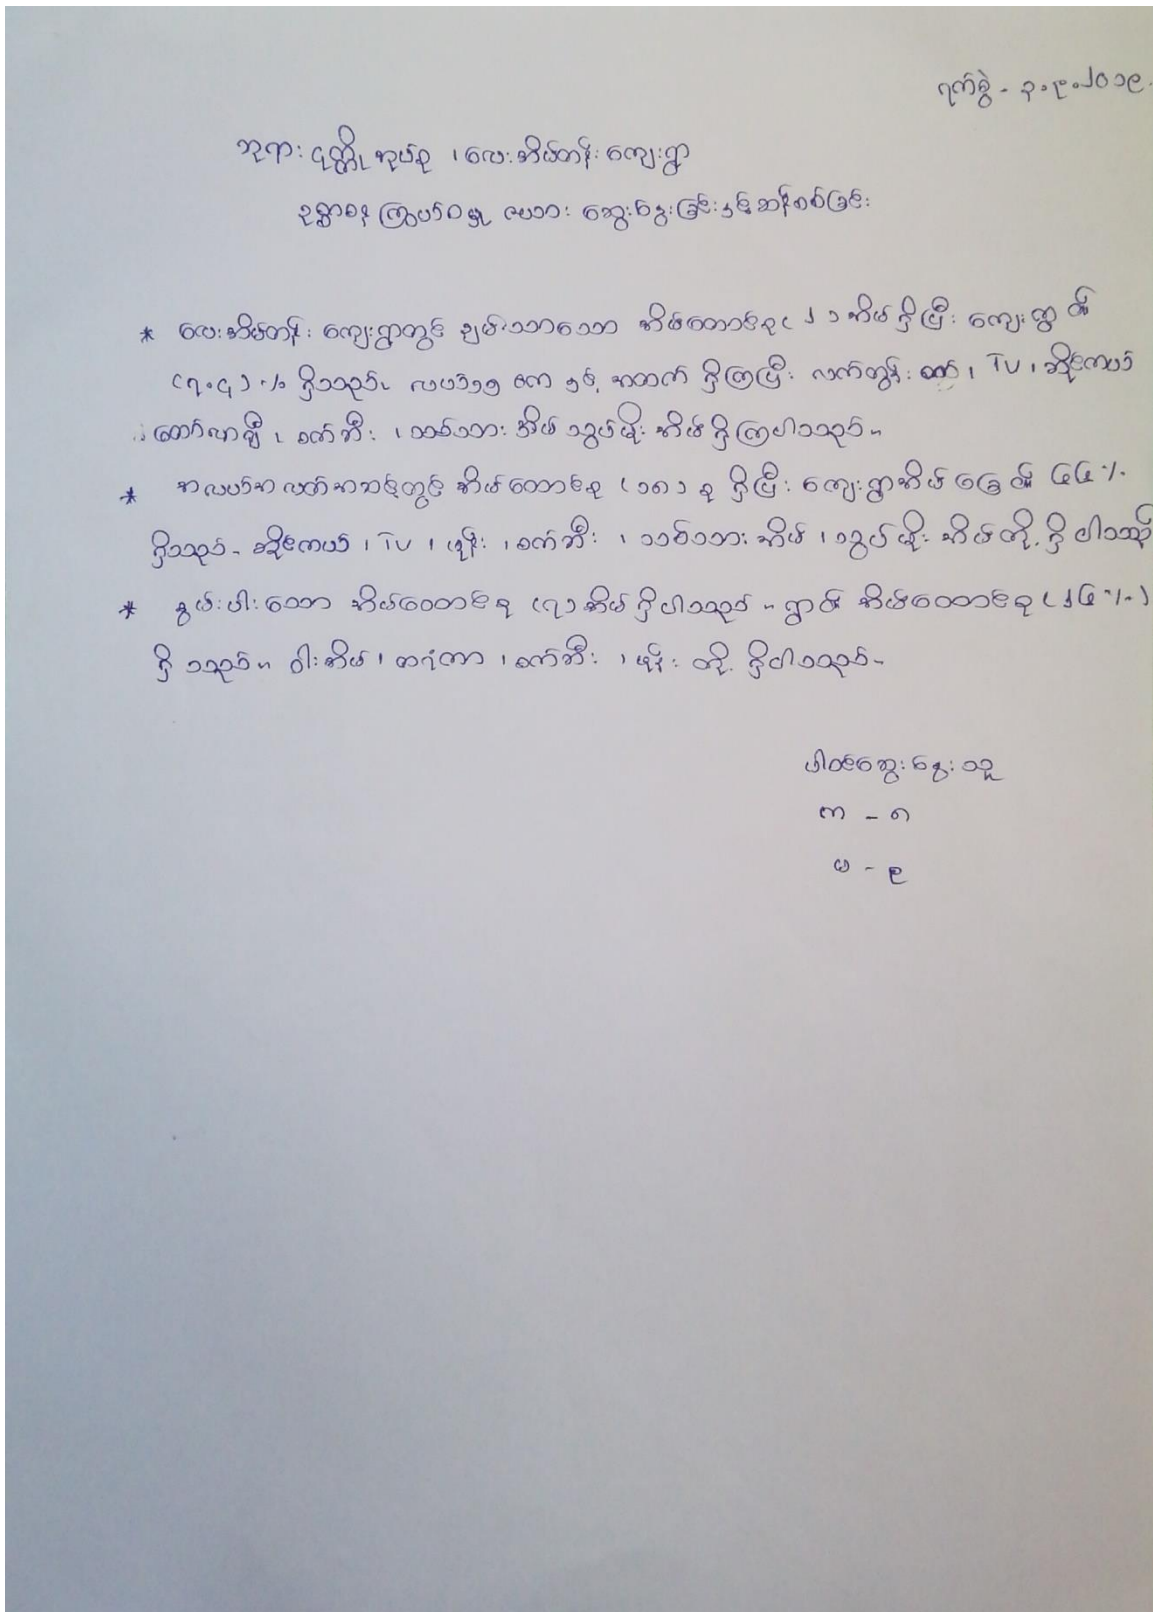 ရက်စွဲ - ၃.၉.၂၀၁၉.
ဘုရား ငုတ္တိုအုပ်စု ၊ လေးအိမ်တန်းကျေးရွာ
ဥစ္စာဓန ကြွယ်ဝမှု ဇယား ဆွေးနွေးခြင်းနှင့်ဆန်းစစ်ခြင်း
* လေးအိမ်တန်း ကျေးရွာတွင် ချမ်းသာသော အိမ်ထောင်စု (၂) အိမ်ရှိပြီး ကျေးရွာ၏
(၇.၄) % ရှိသည်။ လယ် ဧက အထက် ရှိကြပြီး လက်တွန်း စက်၊ TV ၊ ဆိုင်ကယ်
ထော်လာချီ ၊ စက်ဘီး ၊ သစ်သား အိမ် သွပ်မိုး အိမ်ရှိကြပါသည်။
* အလယ်အလတ်အဆင့်တွင် အိမ်ထောင်စု (၁၈) စု ရှိပြီး ကျေးရွာအိမ်ခြေ၏ ၆၆%
ရှိသည်။ ဆိုင်ကယ် ၊ TV ၊ ဖုန်း ၊ စက်ဘီး ၊ သစ်သား အိမ် ၊ သွပ်မိုး အိမ်တို့ ရှိပါသည်
* နွမ်းပါးသော အိမ်ထောင်စု (၇) အိမ်ရှိပါသည်။ ရွာ၏ အိမ်ထောင်စု (၂၆%)
ရှိသည်။ ဝါးအိမ် ၊ ထရံကာ ၊ စက်ဘီး ၊ ဖုန်း တို့ ရှိပါသည်။
ပါဝင်ဆွေးနွေးသူ
ကျား - ၈
မ - ၉